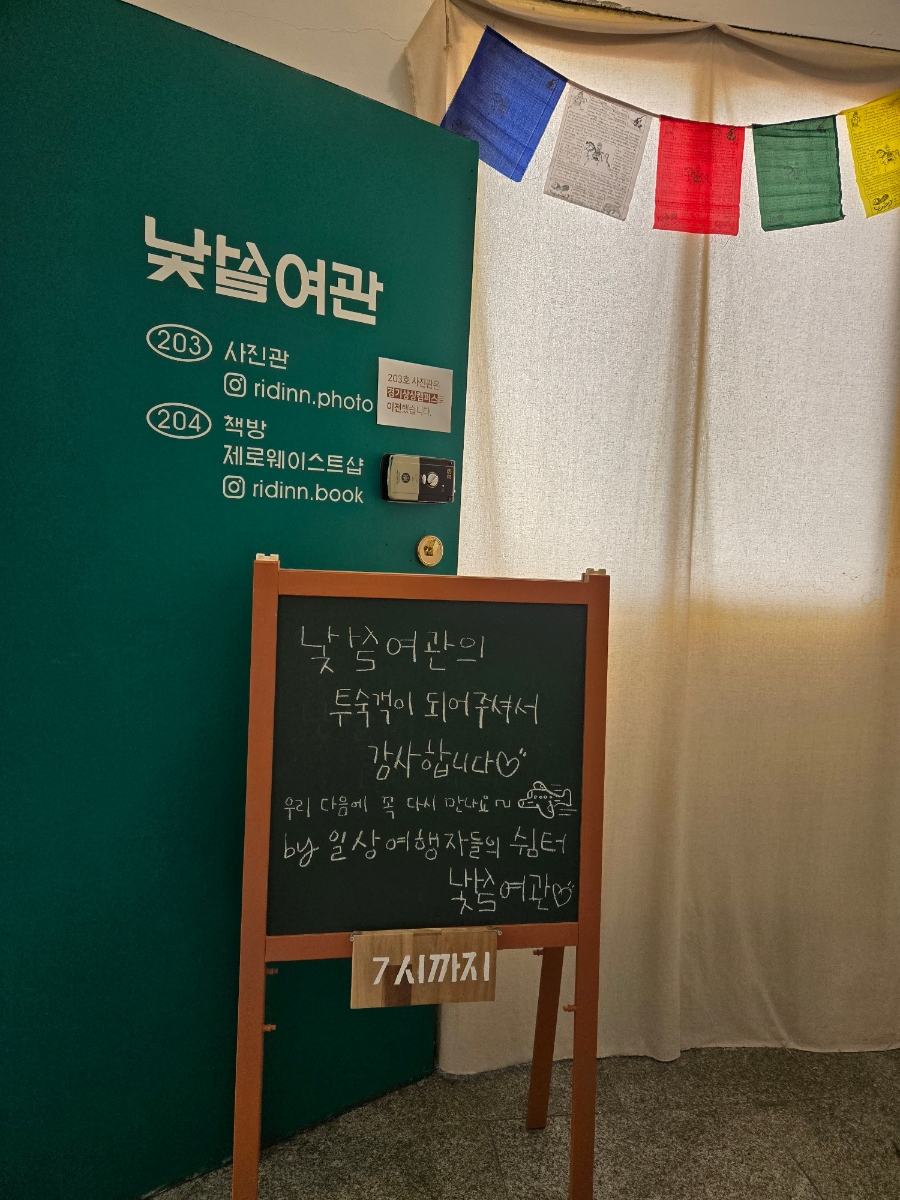 낯설여관
203 사진관
ridinn.photo
203호 사진관은
경기상상캠퍼스로
이전했습니다.
204 책방
제로웨이스트샵
ridinn.book
낯설여관의
투숙객이 되어주셔서
감사합니다♡
우리 다음에 꼭 다시 만나요~
by 일상여행자들의 쉼터
낯설여관♡
7시까지